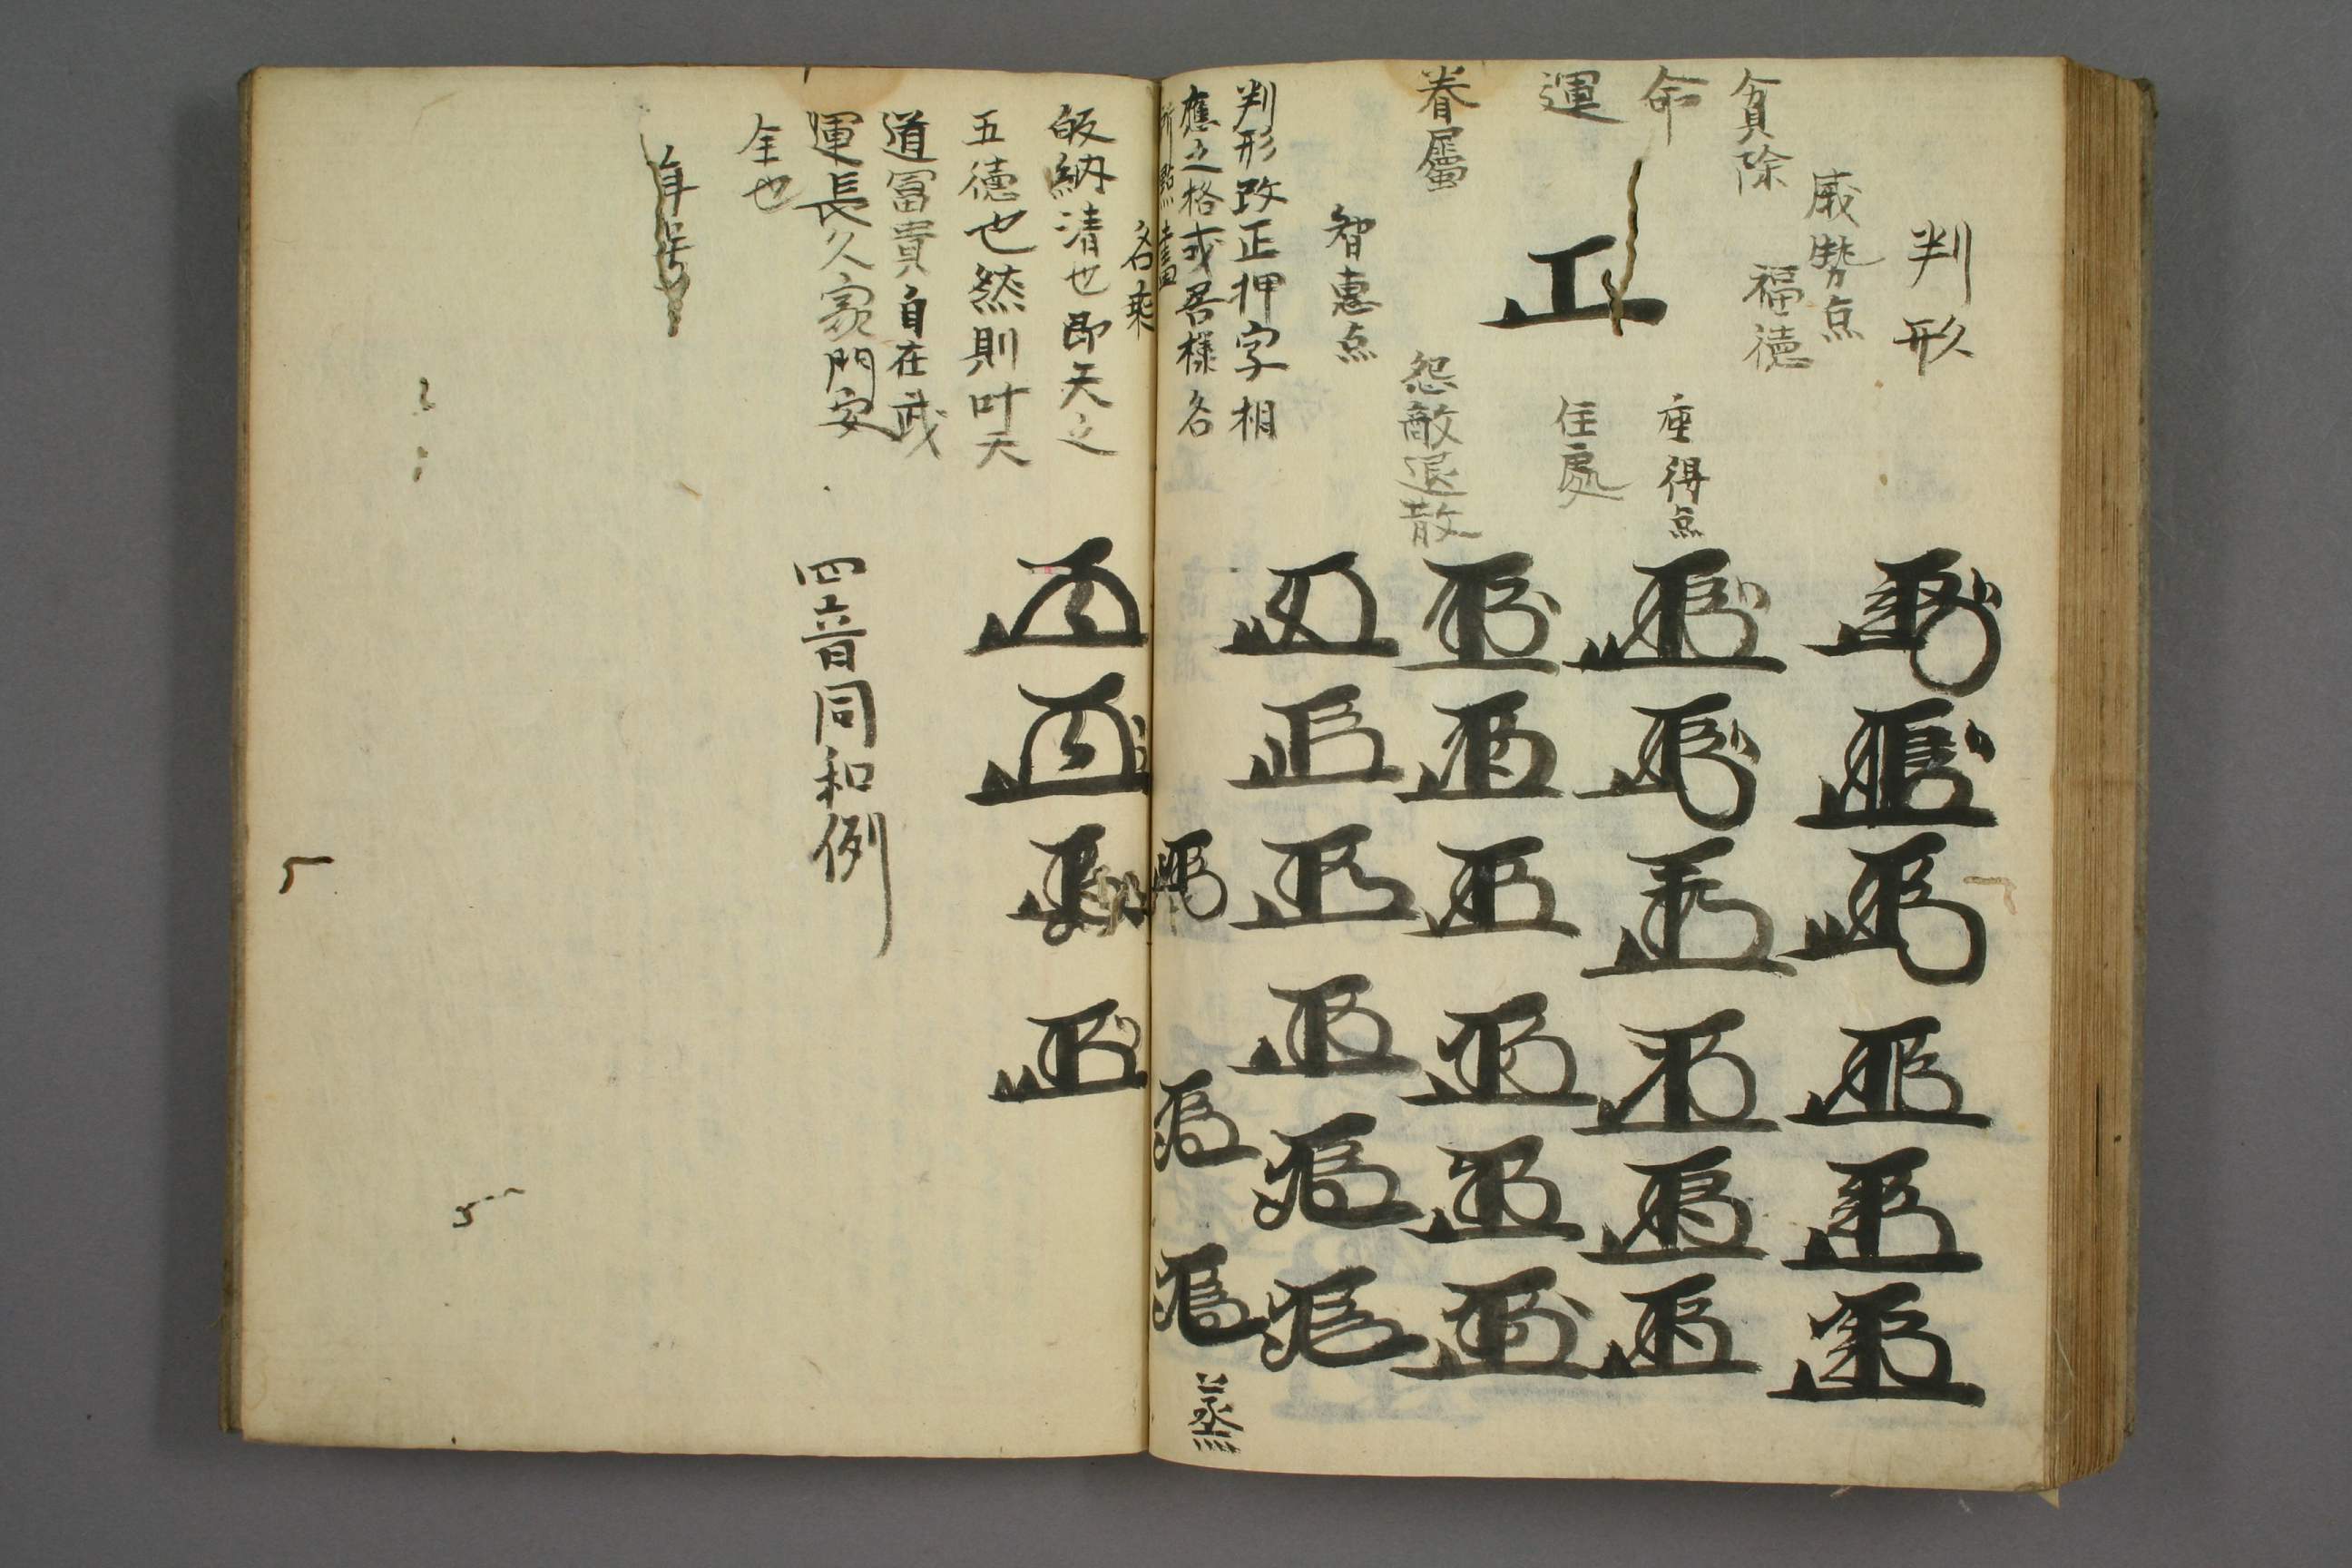 判形
威勢点
福徳
貧除
命
運
座得点
住處
眷屬
怨敵退散
智惠点
判形改正押字相
應之格或吾様名
所點畫
蒸
名乘
皈納清也即天之
五德也然則叶天
道冨貴自在武
運長久家門安
全也
年号
四音同和例